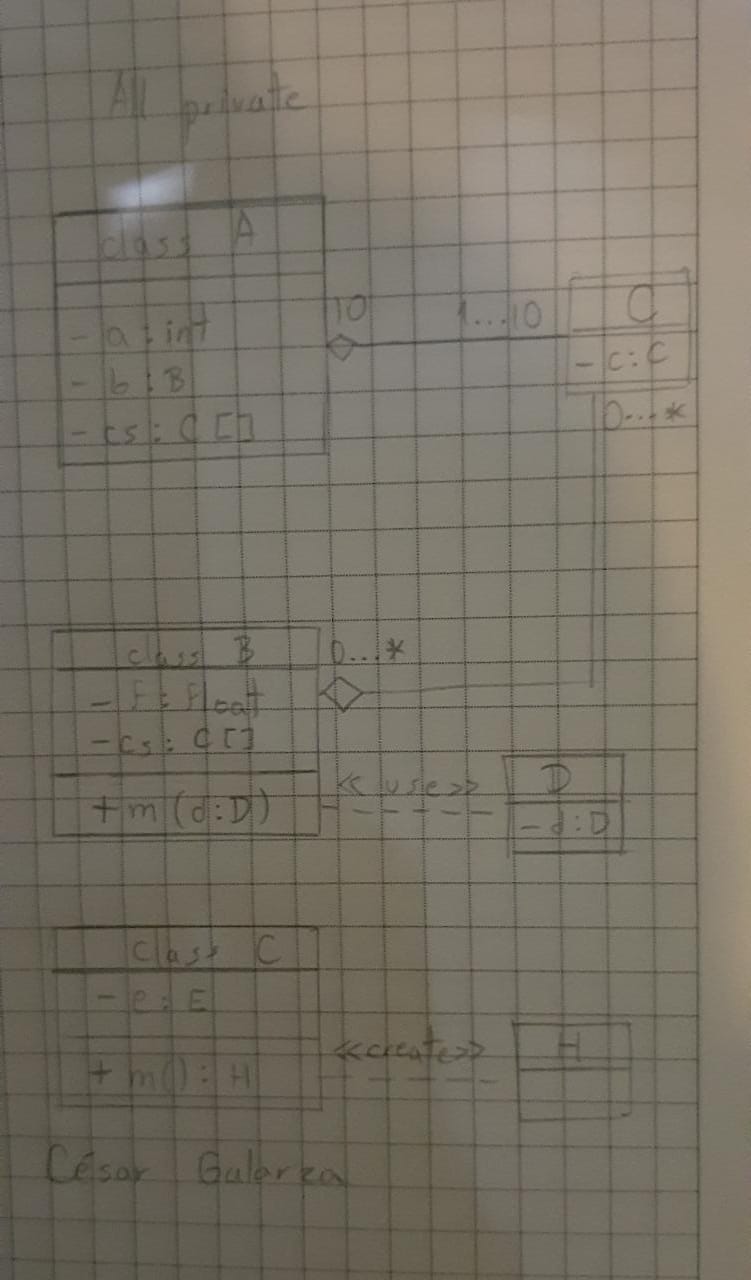 All private
class A
- a : int
- b : B
- cs : C []
10
1...10
C
- c : C
0...*
class B
- F : Float
- cs : C []
+ m (d : D)
0...*
<< use >>
D
- d : D
class C
- e : E
+ m() : H
<<create>>
H
César Galarza